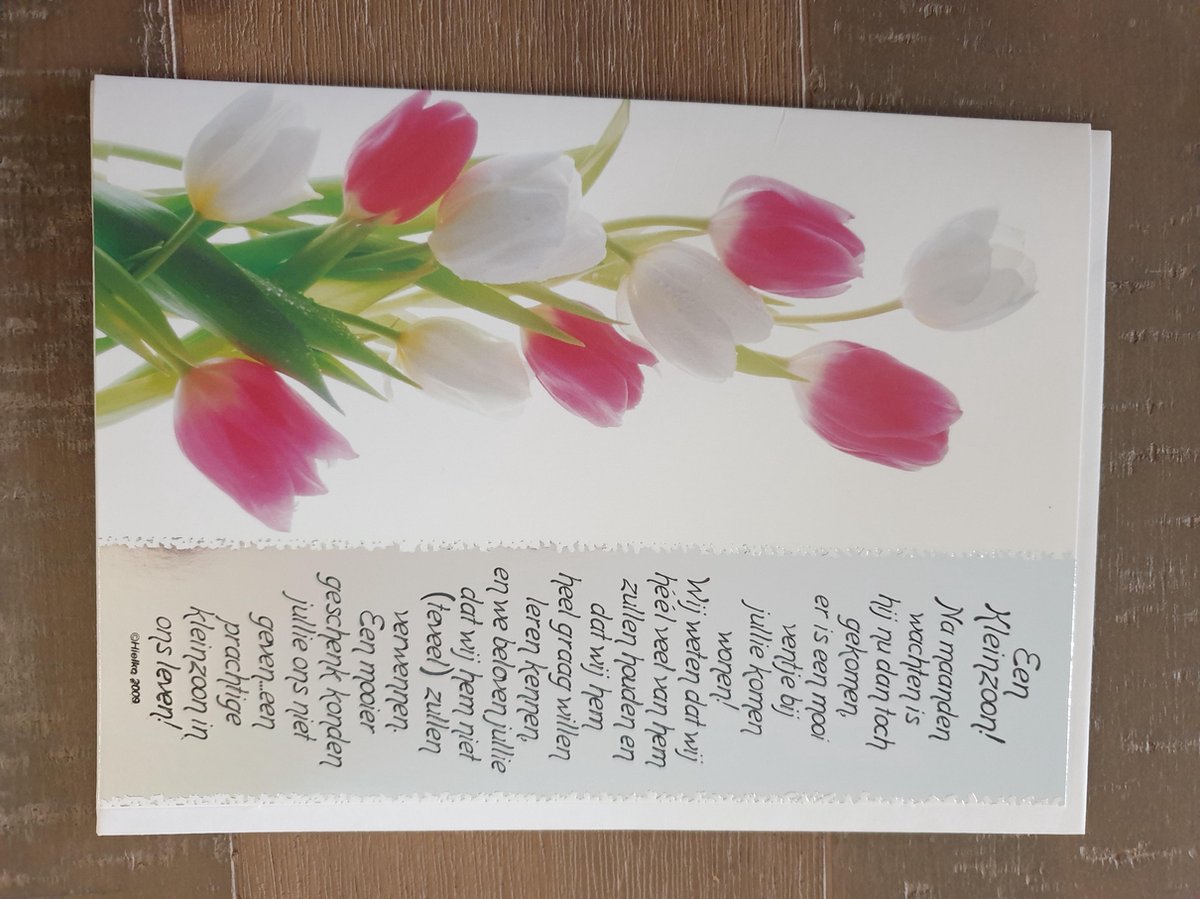 Een
Kleinzoon!
Na maanden
wachten is
hij nu dan toch
gekomen,
er is een mooi
ventje bij
jullie komen
wonen!
Wij weten dat wij
héél veel van hem
zullen houden en
dat wij hem
heel graag willen
leren kennen,
en we beloven jullie
dat wij hem niet
(teveel) zullen
verwennen.
Een mooier
geschenk konden
jullie ons niet
geven...een
prachtige
kleinzoon in
ons leven!
©Hielka 2009